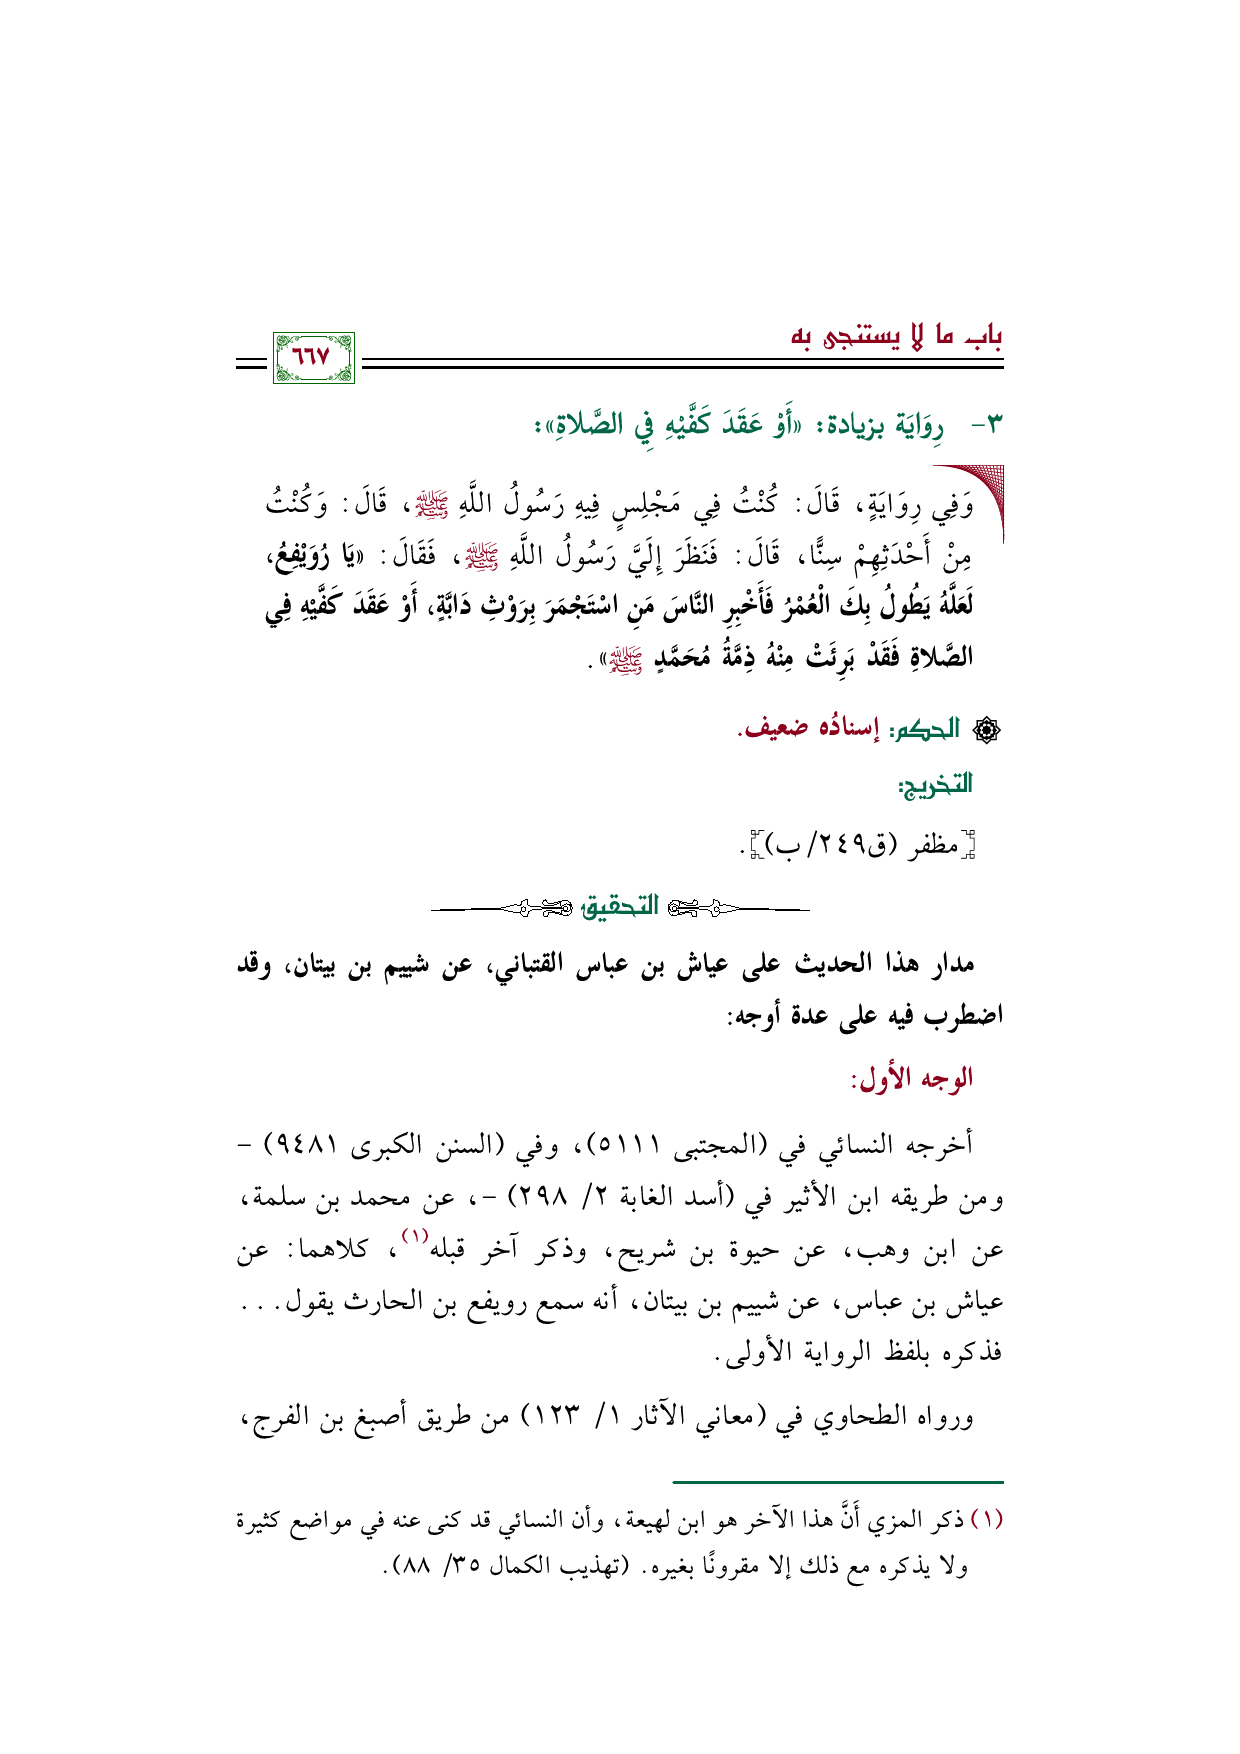 باب ما لا يستنجى به
٦٦٧
٣- رِوَايَة بزيادة: «أَوْ عَقَدَ كَفَّيْهِ فِي الصَّلاةِ»:
وَفِي رِوَايَةٍ، قَالَ: كُنْتُ فِي مَجْلِسٍ فِيهِ رَسُولُ اللَّهِ ﷺ، قَالَ: وَكُنْتُ
مِنْ أَحْدَثِهِمْ سِنًّا، قَالَ: فَنَظَرَ إِلَيَّ رَسُولُ اللَّهِ ﷺ، فَقَالَ: «يَا رُوَيْفِعُ،
لَعَلَّهُ يَطُولُ بِكَ الْعُمْرُ فَأَخْبِرِ النَّاسَ مَنِ اسْتَجْمَرَ بِرَوْثِ دَابَّةٍ، أَوْ عَقَدَ كَفَّيْهِ فِي
الصَّلاةِ فَقَدْ بَرِئَتْ مِنْهُ ذِمَّةُ مُحَمَّدٍ ﷺ».
الحكم: إسنادُه ضعيف.
التخريج:
[مظفر (ق٢٤٩/ ب)].
التحقيق
مدار هذا الحديث على عياش بن عباس القتباني، عن شييم بن بيتان، وقد
اضطرب فيه على عدة أوجه:
الوجه الأول:
أخرجه النسائي في (المجتبى ٥١١١)، وفي (السنن الكبرى ٩٤٨١) -
ومن طريقه ابن الأثير في (أسد الغابة ٢/ ٢٩٨) -، عن محمد بن سلمة،
عن ابن وهب، عن حيوة بن شريح، وذكر آخر قبله(١)، كلاهما: عن
عياش بن عباس، عن شييم بن بيتان، أنه سمع رويفع بن الحارث يقول...
فذكره بلفظ الرواية الأولى.
ورواه الطحاوي في (معاني الآثار ١/ ١٢٣) من طريق أصبغ بن الفرج،
(١) ذكر المزي أَنَّ هذا الآخر هو ابن لهيعة، وأن النسائي قد كنى عنه في مواضع كثيرة
ولا يذكره مع ذلك إلا مقرونًا بغيره. (تهذيب الكمال ٣٥/ ٨٨).